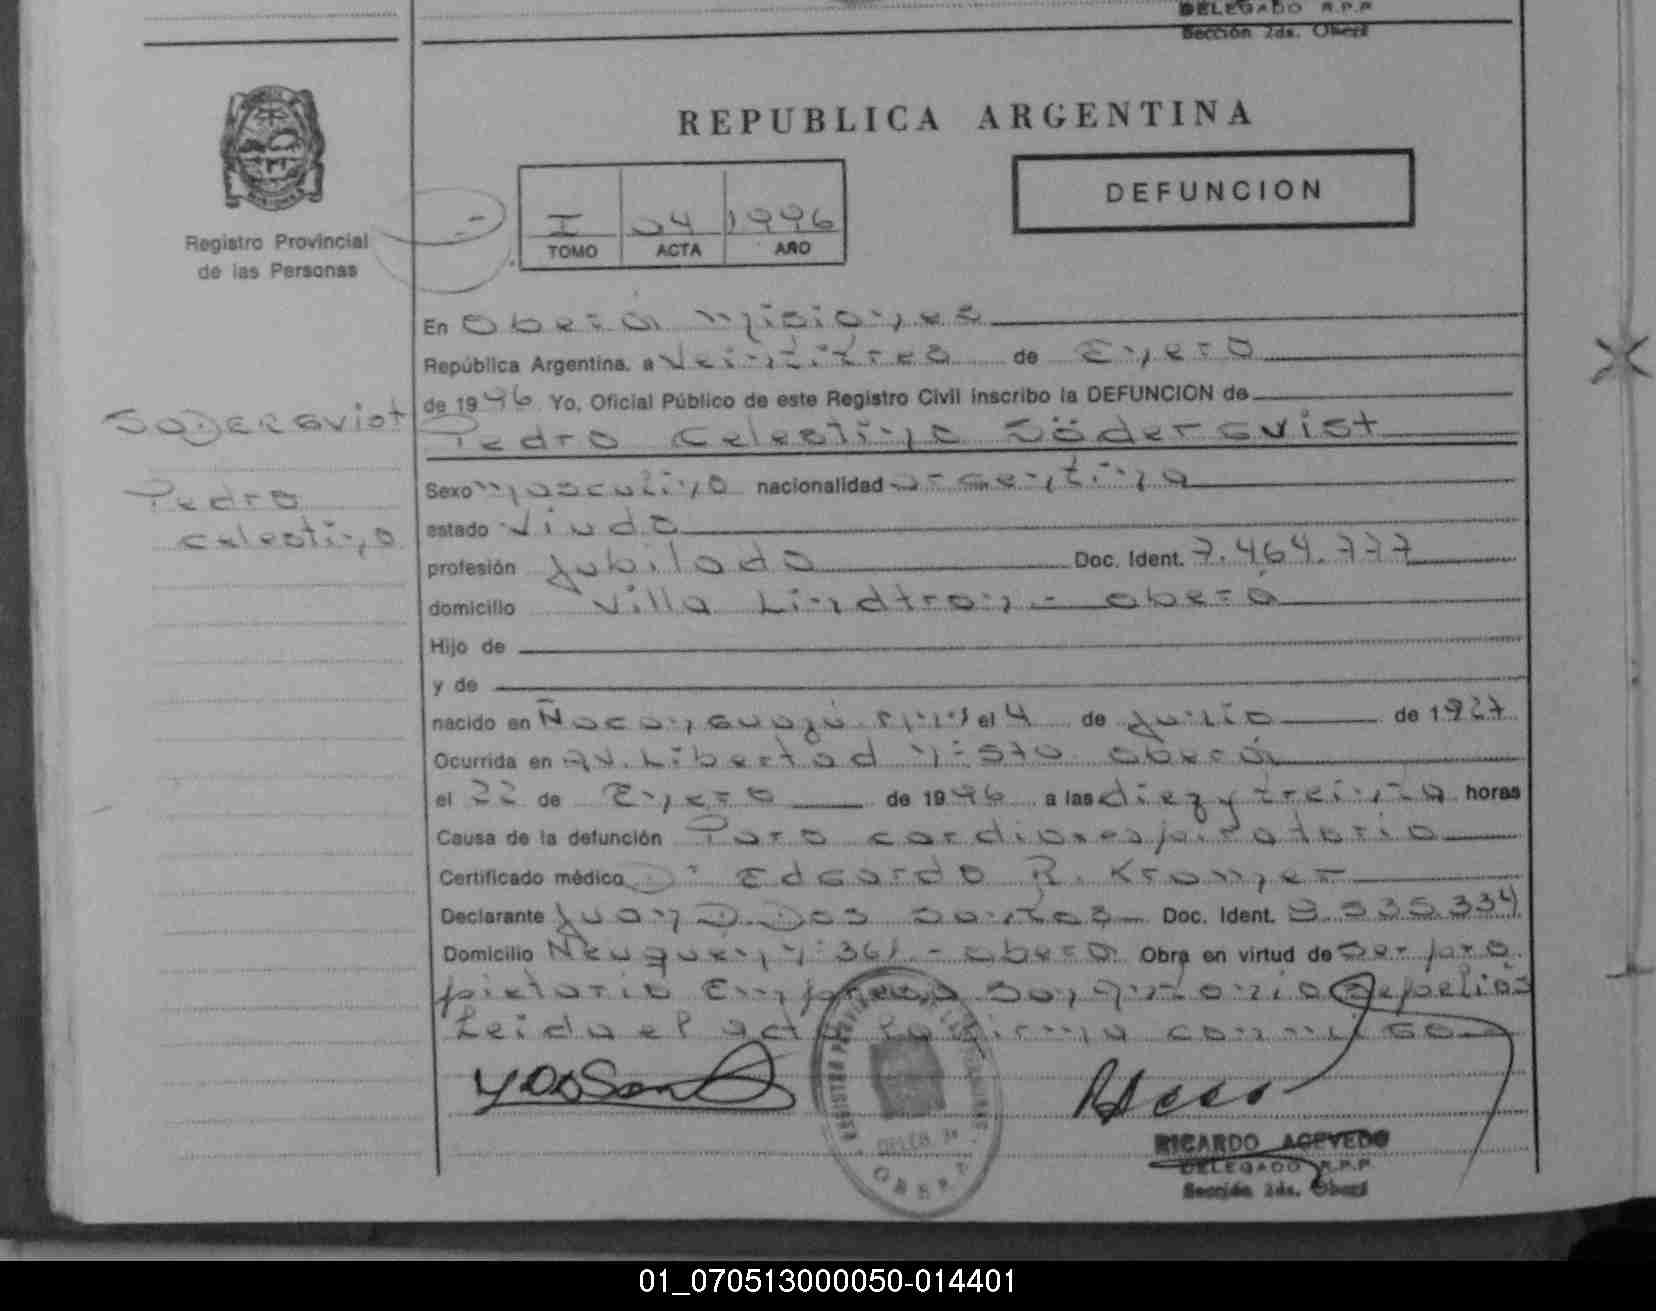 DELEGADO R.P.P
Sección 2da. Oberá
REPUBLICA ARGENTINA
DEFUNCION
I 04 1996
TOMO ACTA AÑO
Registro Provincial
de las Personas
En Oberá Misiones
República Argentina, a Veintitres de Enero
de 1996 Yo, Oficial Público de este Registro Civil inscribo la DEFUNCION de
Södersvist
Pedro Celestino Södersvist
Sexo masculino nacionalidad argentina
Pedro
Celestino
estado Viudo
profesión Jubilado Doc. Ident. 7.464.777
domicilio Villa Lindtron - Oberá
Hijo de
y de
nacido en Ñacanguazú el 4 de Junio de 1927
Ocurrida en Av. Libertad Nº Oberá
el 22 de Enero de 1996 a las diez y treinta horas
Causa de la defunción Paro cardiorespiratorio
Certificado médico Dr Edgardo R. Kramer
Declarante Juan D Dos Santos Doc. Ident. 8.535.334
Domicilio Neuquén Nº 361 - Oberá Obra en virtud de Ser pro
pietario Empresa Sanatorio Sepelios
Leida el acta la firma conmigo
REGISTRO PROVINCIAL DE LAS PERSONAS
OBERA
RICARDO ACEVEDO
DELEGADO R.P.P
Sección 2da. Oberá
01_070513000050-014401